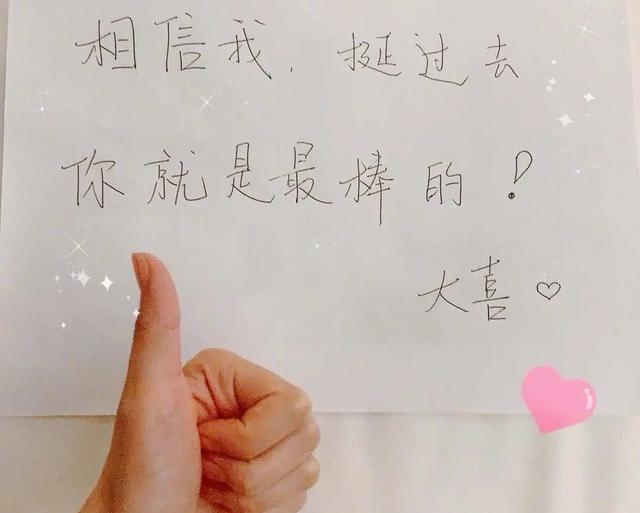 相信我，挺过去
你就是最棒的！
大喜♡